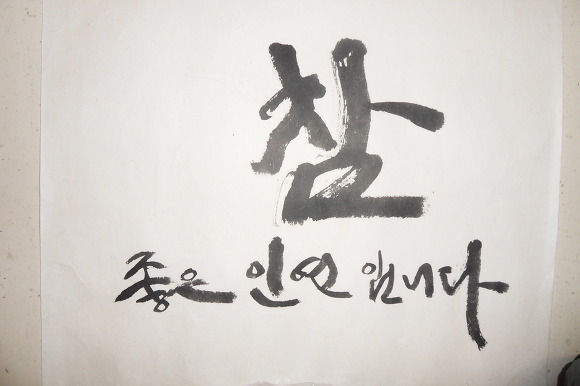 참
좋은 인연 입니다